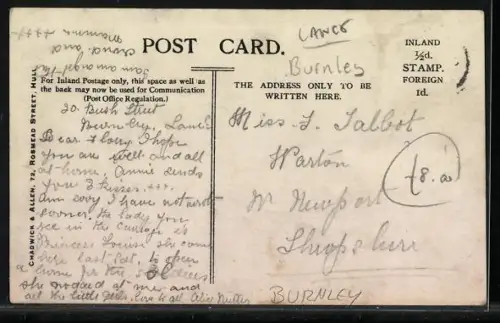 POST CARD.
For Inland Postage only, this space as well as
the back may now be used for Communication
(Post Office Regulation.)
20 Bush Street
Burnley, Lancs
Dear Flory I hope
you are well and all
at home, Annie sends
you 3 kisses xxx
am sory I have not wrote
sooner the lady you
see in the carriage is
Princess Louise she came
here last Sat. to open
a home for the soldiers
she nodded at me and
all the little Dells, love to all Alice Nutter
CHADWICK & ALLEN, 72, ROSMEAD STREET, HULL
LANCS
Burnley
THE ADDRESS ONLY TO BE
WRITTEN HERE.
INLAND
½d.
STAMP.
FOREIGN
1d.
Miss F. Talbot
Warton
Nr Newport
Shropshire
BURNLEY